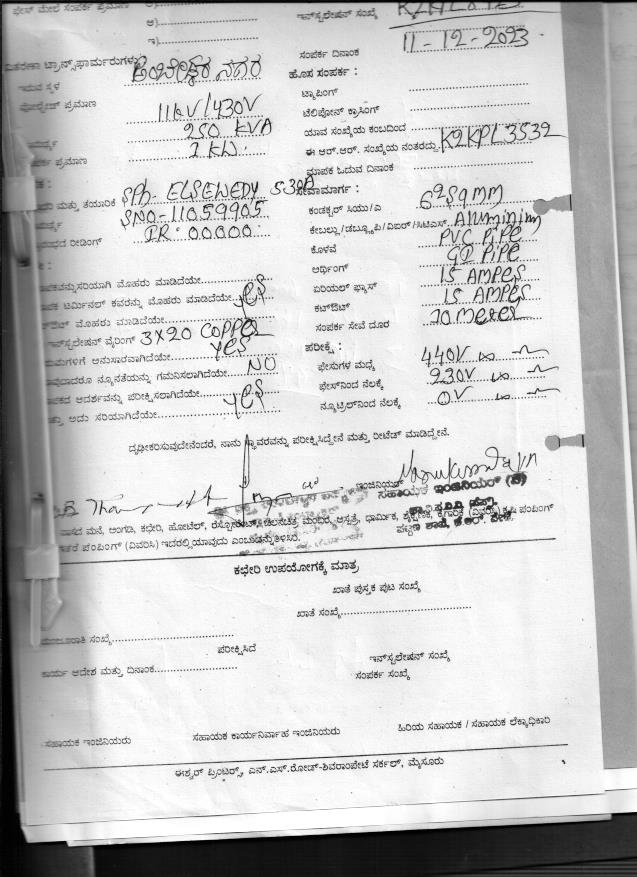 ಮೇಲೆ ಸಂಪರ್ಕ ಪ್ರಮಾಣ
ಅ)
ಇ)
ಇನ್‌ಸ್ಟಲೇಷನ್ ಸಂಖ್ಯೆ
ಸಂಪರ್ಕ ದಿನಾಂಕ 11-12-2023
ವಿತರಣಾ ಟ್ರಾನ್ಸ್‌ಫಾರ್ಮರುಗಳು
ಇರುವ ಸ್ಥಳ ಅಂಬೇಡ್ಕರ ನಗರ
ಹೊಸ ಸಂಪರ್ಕ :
ವೋಲ್ಟೇಜ್ ಪ್ರಮಾಣ 11kV/430V
ಟ್ಯಾಪಿಂಗ್
250 KVA
ಟೆಲಿಫೋನ್ ಕ್ರಾಸಿಂಗ್
ಪ್ರಮಾಣ 2 KW
ಯಾವ ಸಂಖ್ಯೆಯ ಕಂಬದಿಂದ
ಈ ಆರ್.ಆರ್. ಸಂಖ್ಯೆಯ ನಂತರದ್ದು K2KPL3532
ಮಾಪಕ ಓದುವ ದಿನಾಂಕ
ಮತ್ತು ತಯಾರಿಕೆ SPh- ELSEWEDY 5-30A
ಸೇವಾಮಾರ್ಗ :
SNO-11059905
ಕಂಡಕ್ಟರ್ ಸಿಯು/ಎ 6 2SqMM
ರೀಡಿಂಗ್ IR: 00000
Aluminium
ಕೊಳವೆ PVC PiPe
ಅರ್ಥಿಂಗ್ GI PiPe
ಮೊಹರು ಮಾಡಿದೆಯೇ
ಏರಿಯಲ್ ಫ್ಯೂಸ್ 15 AMPes
ಟರ್ಮಿನಲ್ ಕವರನ್ನು ಮೊಹರು ಮಾಡಿದೆಯೇ YES
ಕಟ್‌ಔಟ್ 15 AMPes
ಮೊಹರು ಮಾಡಿದೆಯೇ
ಸಂಪರ್ಕ ಸೇವೆ ದೂರ 20 meter
ಇನ್‌ಸ್ಟಲೇಷನ್ ವೈರಿಂಗ್ 3X20 COPPER
ಅನುಸಾರವಾಗಿದೆಯೇ YES
ಪರೀಕ್ಷೆ :
ನ್ಯೂನತೆಯನ್ನು ಗಮನಿಸಲಾಗಿದೆಯೇ NO
ಫೇಸುಗಳ ಮಧ್ಯೆ 440V
ಆದರ್ಶವನ್ನು ಪರೀಕ್ಷಿಸಲಾಗಿದೆಯೇ
ಫೇಸ್‌ನಿಂದ ನೆಲಕ್ಕೆ 230V
ಅದು ಸರಿಯಾಗಿದೆಯೇ YES
ನ್ಯೂಟ್ರಲ್‌ನಿಂದ ನೆಲಕ್ಕೆ 0V
ದೃಢೀಕರಿಸುವುದೇನೆಂದರೆ, ನಾನು ಸ್ಥಾವರವನ್ನು ಪರೀಕ್ಷಿಸಿದ್ದೇನೆ ಮತ್ತು ರೀಟೆಡ್ ಮಾಡಿದ್ದೇನೆ.
ಇಂಜಿನಿಯರ್
ಸಹಾಯಕ ಇಂಜಿನಿಯರ್ (ವಿ)
ಮನೆ, ಅಂಗಡಿ, ಕಛೇರಿ, ಹೋಟೆಲ್, ಆಸ್ಪತ್ರೆ, ಧಾರ್ಮಿಕ, ಕೃಷಿ ಪಂಪಿಂಗ್
ಪಂಪಿಂಗ್ (ವಿವರಿಸಿ) ಇದರಲ್ಲಿ ಯಾವುದು ಎಂಬುದನ್ನು ತಿಳಿಸಿರಿ.
ಕಛೇರಿ ಉಪಯೋಗಕ್ಕೆ ಮಾತ್ರ
ಖಾತೆ ಪುಸ್ತಕ ಪುಟ ಸಂಖ್ಯೆ
ಖಾತೆ ಸಂಖ್ಯೆ
ಮಂಜೂರಾತಿ ಸಂಖ್ಯೆ
ಪರೀಕ್ಷಿಸಿದೆ
ಇನ್‌ಸ್ಟಲೇಷನ್ ಸಂಖ್ಯೆ
ಕಾರ್ಯ ಆದೇಶ ಮತ್ತು ದಿನಾಂಕ
ಸಂಪರ್ಕ ಸಂಖ್ಯೆ
ಸಹಾಯಕ ಇಂಜಿನಿಯರು
ಸಹಾಯಕ ಕಾರ್ಯನಿರ್ವಾಹ ಇಂಜಿನಿಯರು
ಹಿರಿಯ ಸಹಾಯಕ / ಸಹಾಯಕ ಲೆಕ್ಕಾಧಿಕಾರಿ
ಈಶ್ವರ್ ಪ್ರಿಂಟರ್ಸ್, ಎನ್.ಎಸ್.ರೋಡ್-ಶಿವರಾಂಪೇಟೆ ಸರ್ಕಲ್, ಮೈಸೂರು